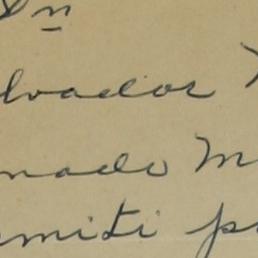 Dn
lvador
nado M
miti p